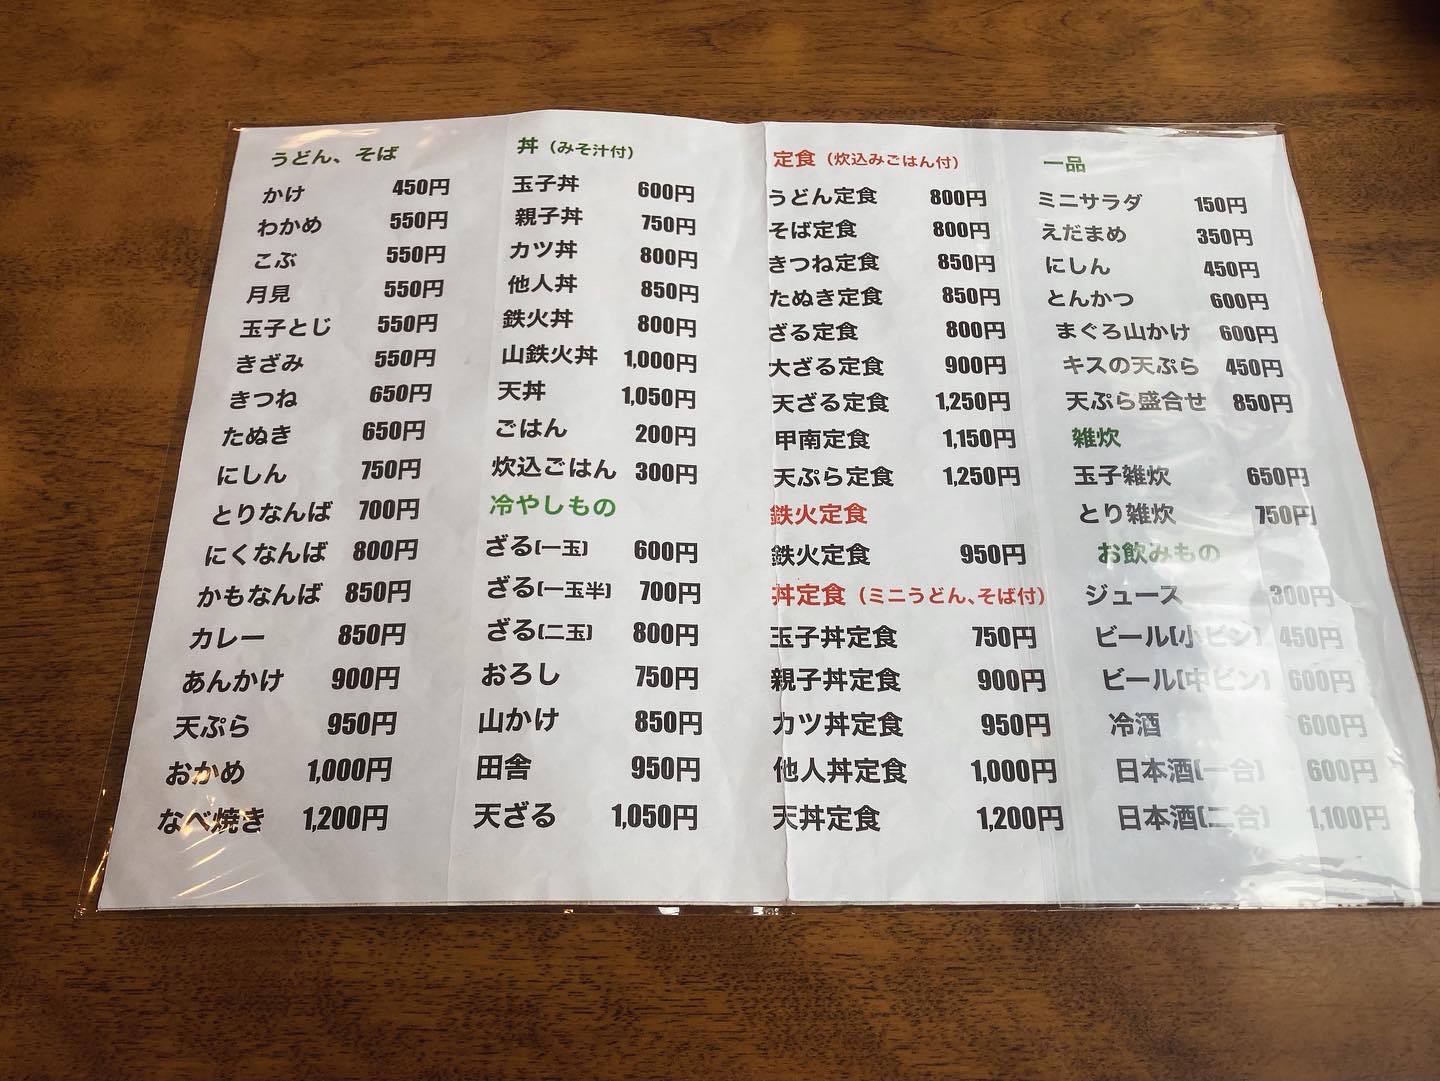 うどん、そば
かけ 450円
わかめ 550円
こぶ 550円
月見 550円
玉子とじ 550円
きざみ 550円
きつね 650円
たぬき 650円
にしん 750円
とりなんば 700円
にくなんば 800円
かもなんば 850円
カレー 850円
あんかけ 900円
天ぷら 950円
おかめ 1,000円
なべ焼き 1,200円
丼（みそ汁付）
玉子丼 600円
親子丼 750円
カツ丼 800円
他人丼 850円
鉄火丼 800円
山鉄火丼 1,000円
天丼 1,050円
ごはん 200円
炊込ごはん 300円
冷やしもの
ざる(一玉) 600円
ざる(一玉半) 700円
ざる(二玉) 800円
おろし 750円
山かけ 850円
田舎 950円
天ざる 1,050円
定食（炊込みごはん付）
うどん定食 800円
そば定食 800円
きつね定食 850円
たぬき定食 850円
ざる定食 800円
大ざる定食 900円
天ざる定食 1,250円
甲南定食 1,150円
天ぷら定食 1,250円
鉄火定食
鉄火定食 950円
丼定食（ミニうどん､そば付）
玉子丼定食 750円
親子丼定食 900円
カツ丼定食 950円
他人丼定食 1,000円
天丼定食 1,200円
一品
ミニサラダ 150円
えだまめ 350円
にしん 450円
とんかつ 600円
まぐろ山かけ 600円
キスの天ぷら 450円
天ぷら盛合せ 850円
雑炊
玉子雑炊 650円
とり雑炊 750円
お飲みもの
ジュース 300円
ビール(小ビン) 450円
ビール(中ビン) 600円
冷酒 600円
日本酒(一合) 600円
日本酒(二合) 1,100円